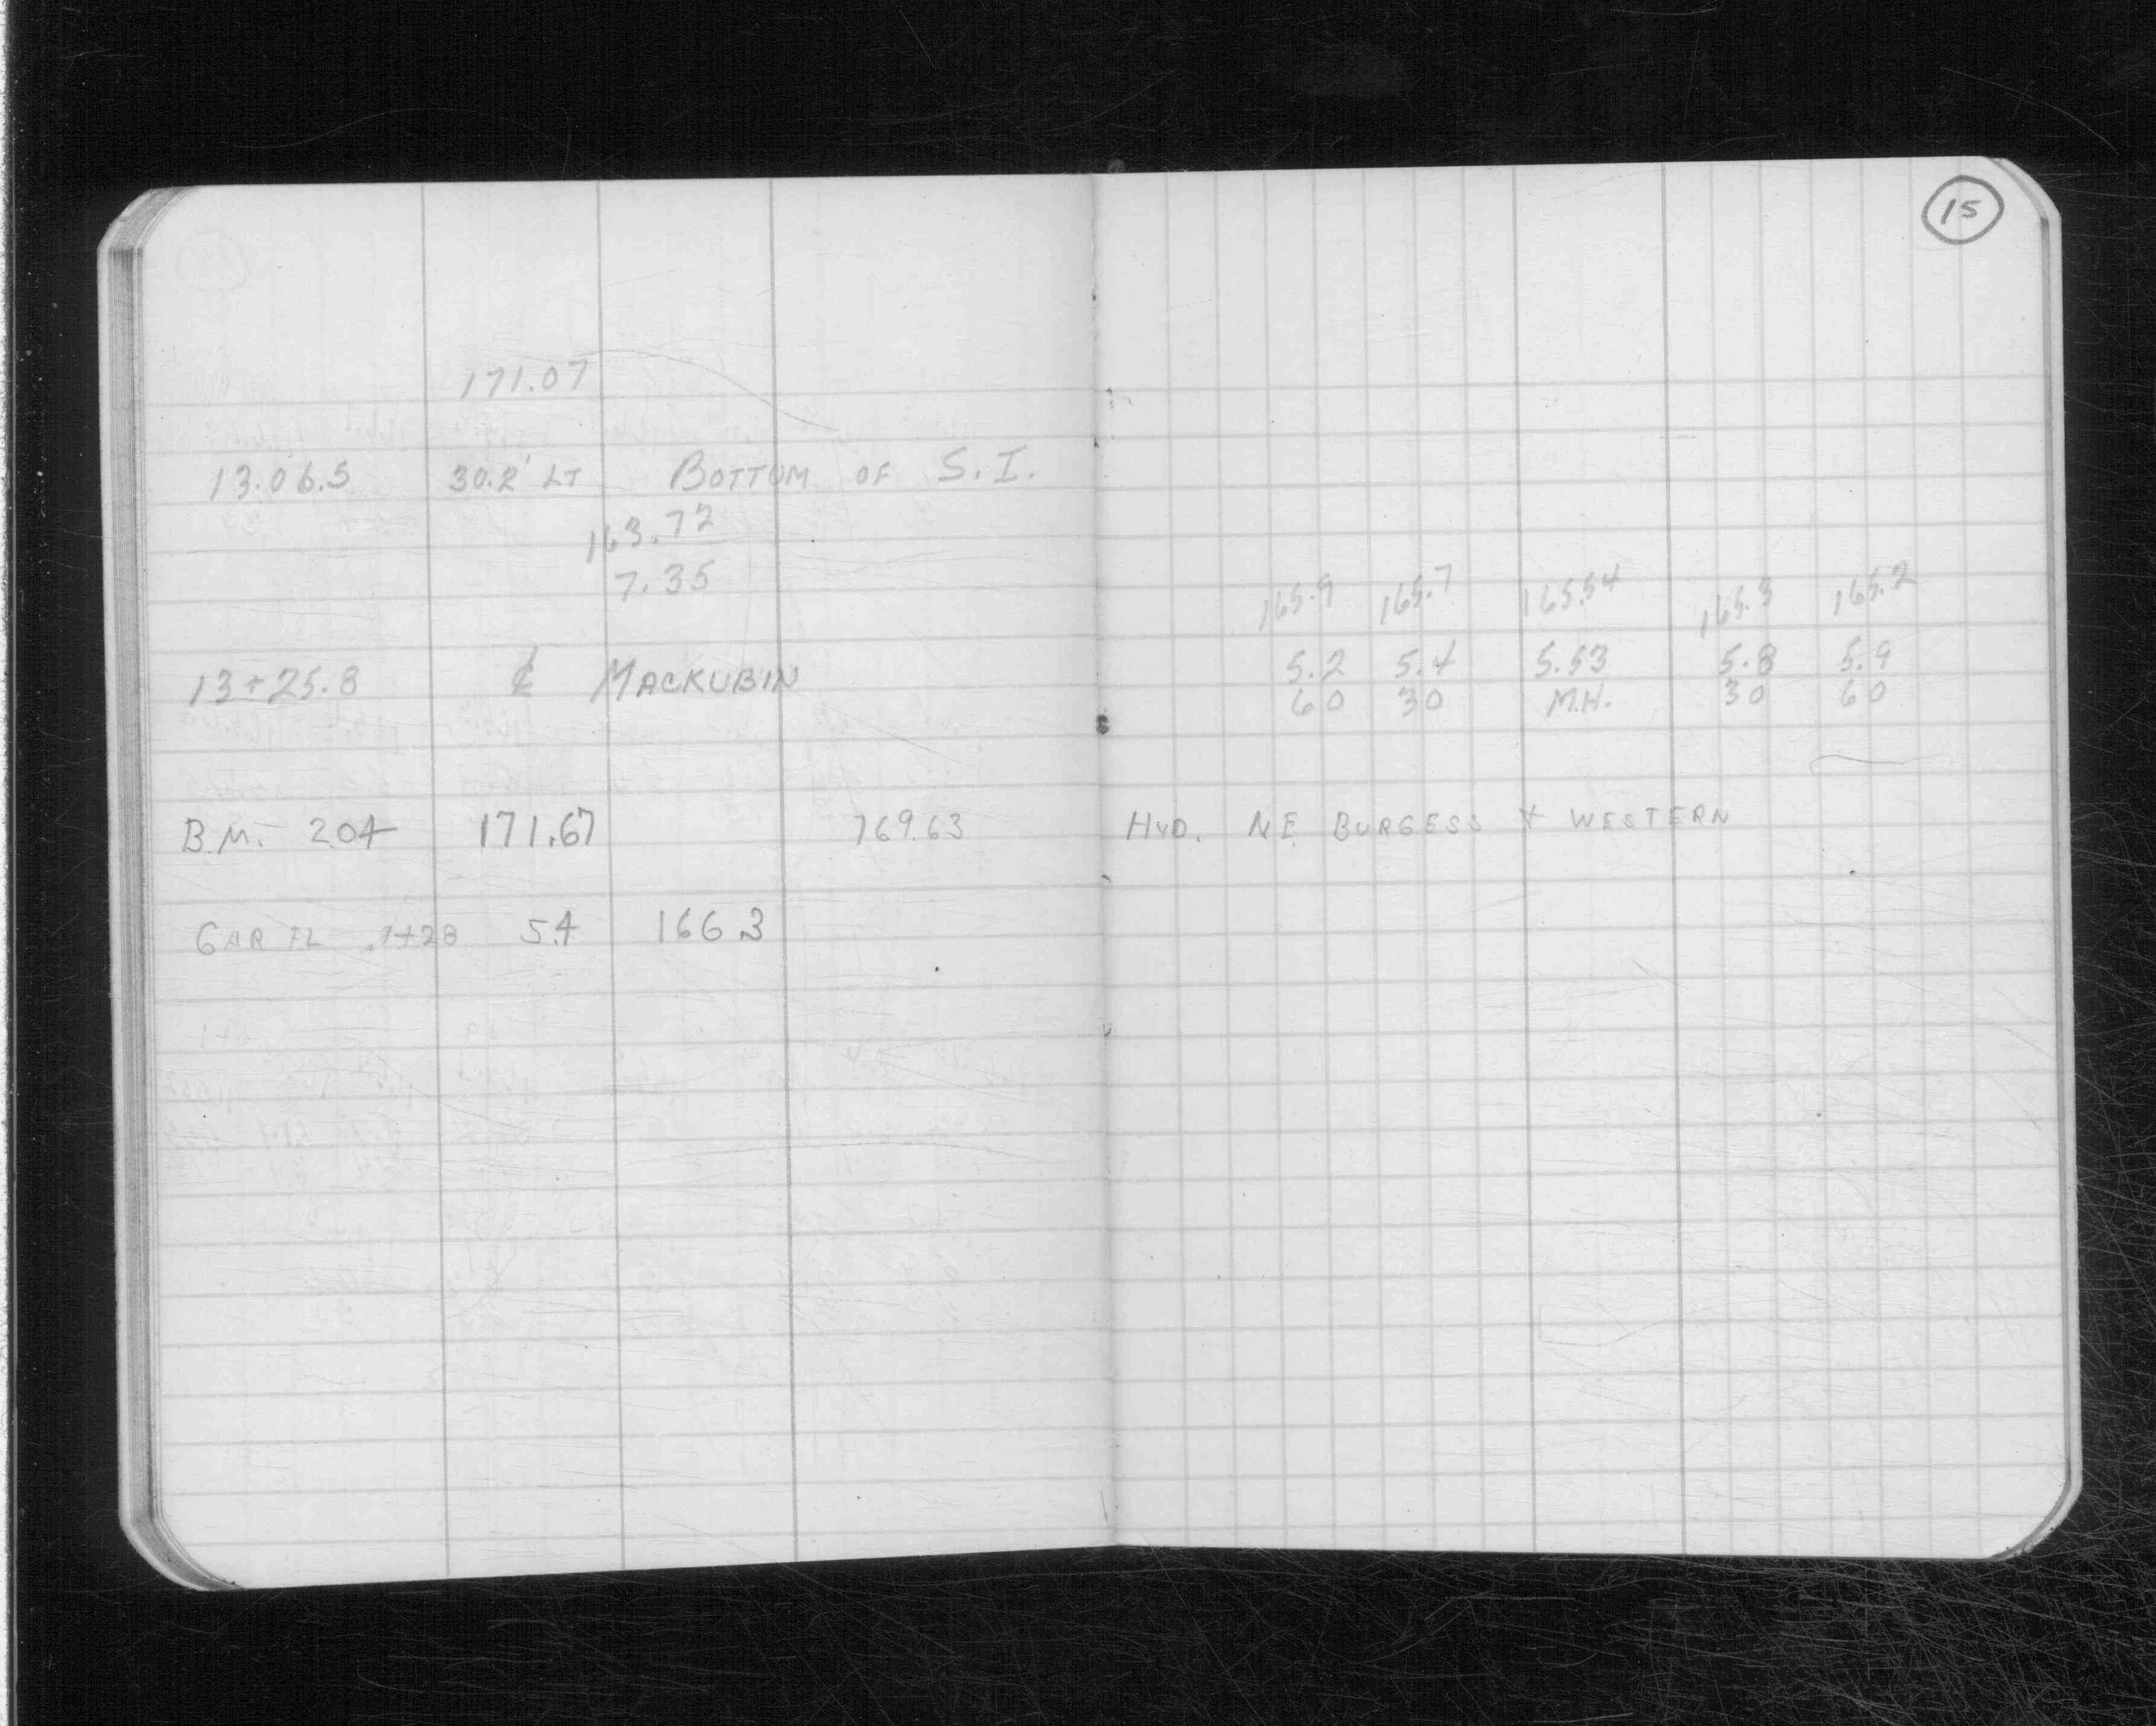 15
171.07
13.06.5 30.2' LT BOTTUM OF S.I.
163.72
7.35
165.9 165.7 165.54 165.3 165.2
13+25.8 ℄ MACKUBIN 5.2 5.4 5.53 5.8 5.9
60 30 M.H. 30 60
B.M. 2.04 171.67 169.63 HYD. N.E. BURGESS & WESTERN
GAR FL 1+28 5.4 166.3